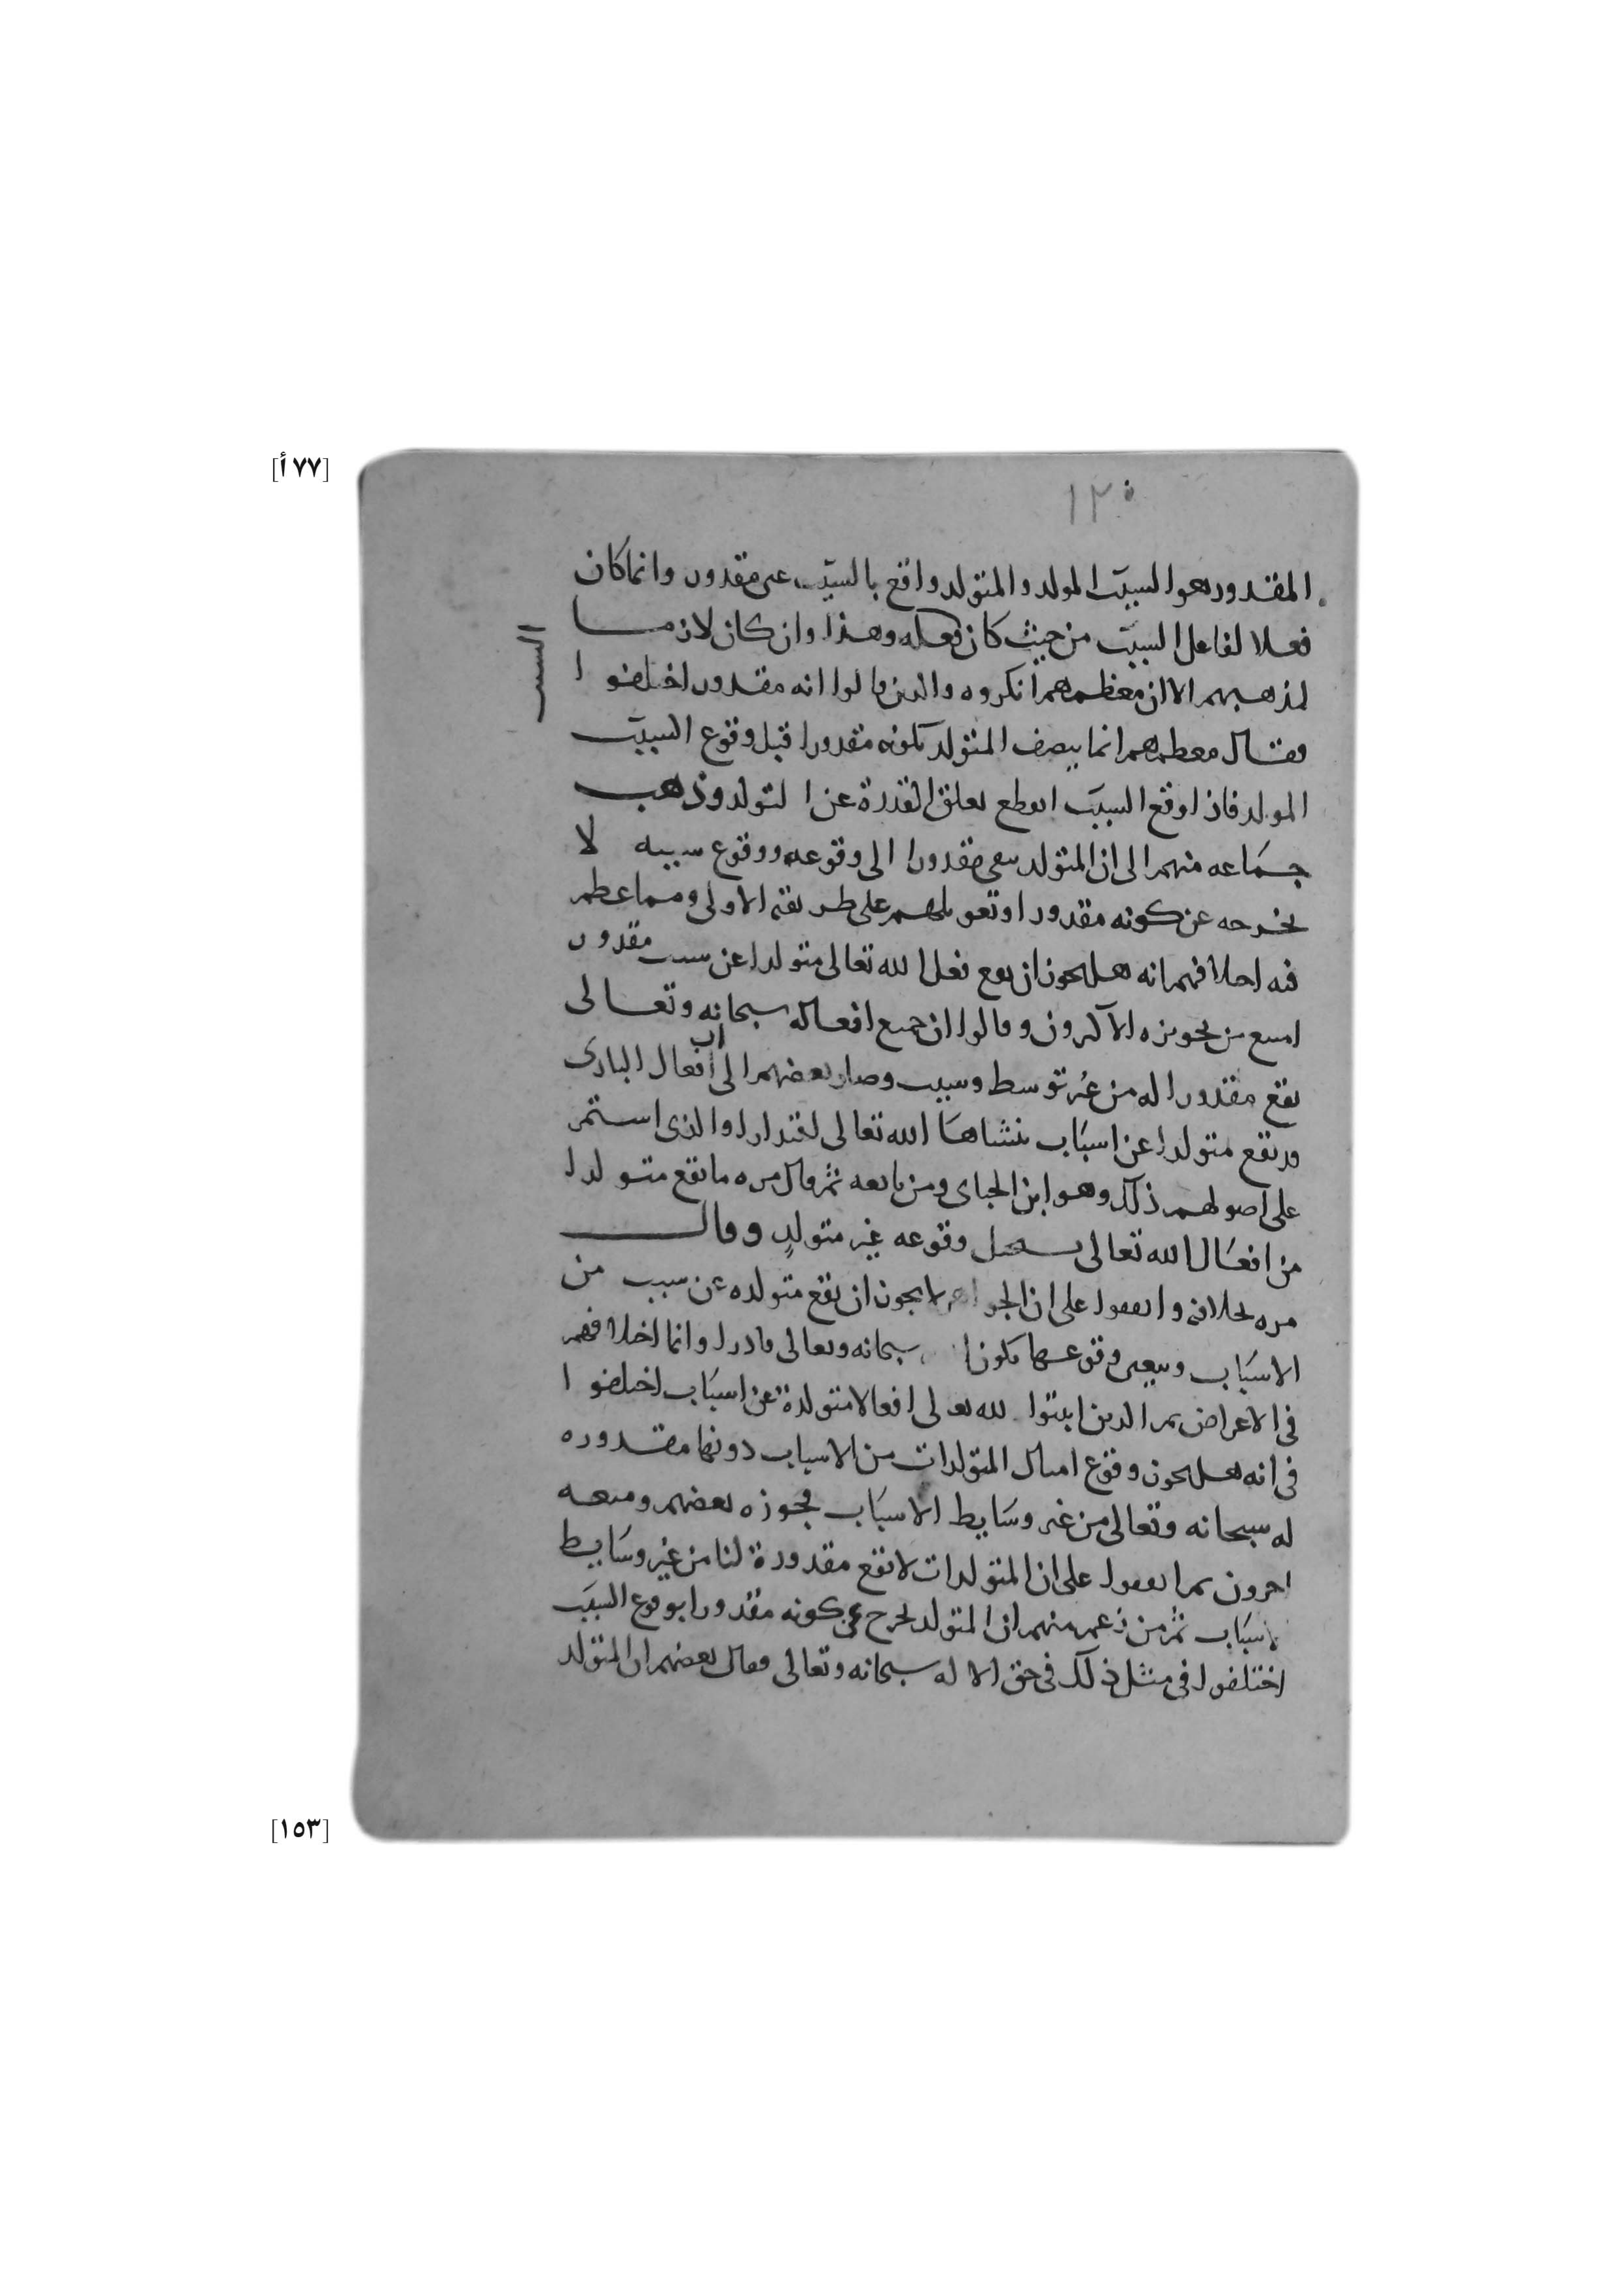 [٧٧ أ]
١٢٠
المقدور هو السبب المولد والمتولد واقع بالسبب غير مقدور وانما كان
فعلا لفاعل السبب من حيث كان فعله وهذا وان كان لازما
لمذهبهم الا ان معظمهم انكروه والذين قالوا انه مقدور اختلفوا
فقال معظمهم انما يتصف المتولد بكونه مقدورا قبل وقوع السبب
المولد فاذا وقع السبب انقطع تعلق القدرة عن التولد وذهب
جماعه منهم الى ان المتولد يبقى مقدورا الى وقوعه ووقوع سببه لا
يخرجه عن كونه مقدورا وتعويلهم على طريقة الاولى ومما عظم
فيه اختلافهم انه هل يجوز ان يقع فعل الله تعالى متولدا عن سبب مقدور
امتنع من تجويزه الاكثرون وقالوا ان جميع افعاله سبحانه وتعالى
يقع مقدورا له من غير توسط وسبب وصار بعضهم الى ان افعال البارى
قد يقع متولدا عن اسباب ينشاها الله تعالى اقتدارا والذى استمر
على اصولهم ذلك وهو ابن الجباى ومن تابعه ثم قال مره ما يقع متولدا
من افعال الله تعالى يستحيل وقوعه غير متولد وقال
مره بخلافه واتفقوا على ان الجواهر لا يجوز ان يقع متولده عن سبب من
الاسباب ويتعين وقوعها بكون سبحانه وتعالى قادرا وانما اختلافهم
فى الاعراض ثم الذين اثبتوا لله تعالى افعالا متولدة عن اسباب اختلفوا
فى انه هل يجوز وقوع امثال المتولدات من الاسباب دونها مقدوره
له سبحانه وتعالى من غير وسايط الاسباب فجوزه بعضهم ومنعه
اخرون ثم اتفقوا على ان المتولدات لا تقع مقدورة لنا من غير وسايط
اسباب ثم من زعم منهم ان المتولد يخرج عن كونه مقدورا بوقوع السبب
اختلفوا فى مثل ذلك فى حق الاله سبحانه وتعالى فقال بعضهم ان المتولد
[١٥٣]